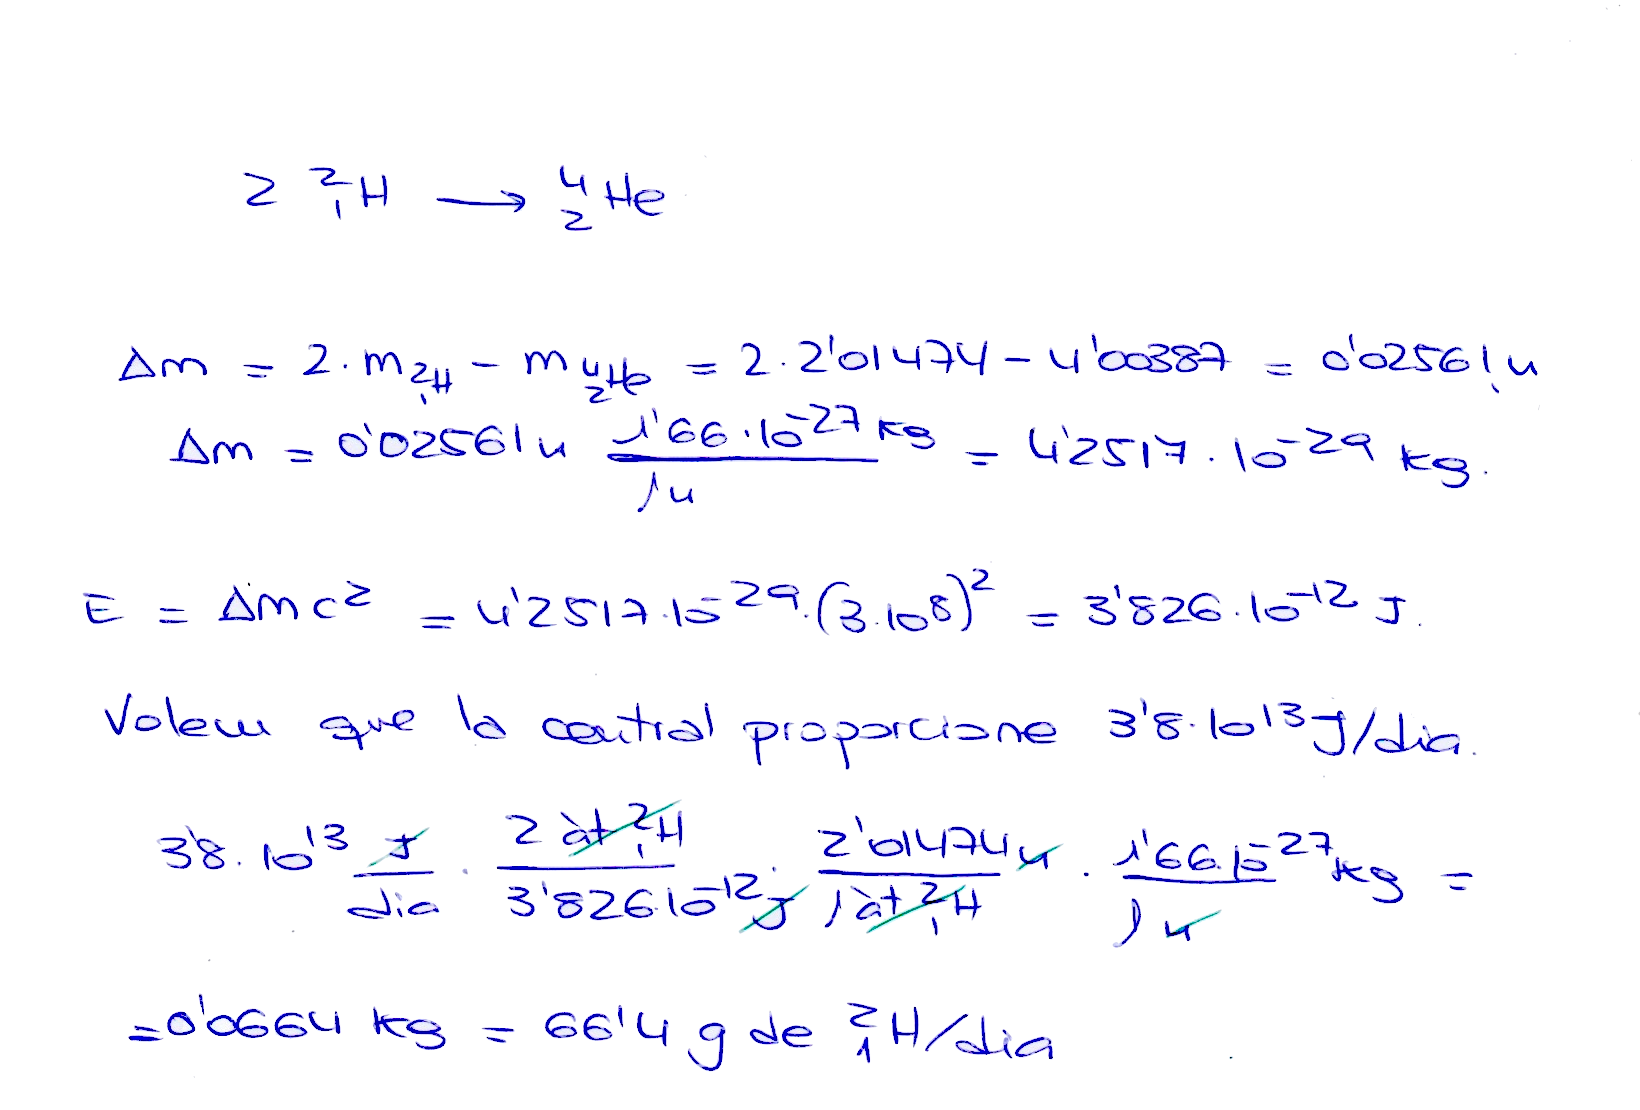 2 ²₁H → ⁴₂He
Δm = 2·m ²₁H − m ⁴₂He = 2·2'01474 − 4'00387 = 0'02561 u
Δm = 0'02561 u 1'66·10⁻²⁷ kg / 1 u = 4'2517·10⁻²⁹ kg.
E = Δmc² = 4'2517·10⁻²⁹·(3·10⁸)² = 3'826·10⁻¹² J.
Volem que la central proporcione 3'8·10¹³ J/dia.
3'8·10¹³ J/dia · 2 àt ²₁H / 3'826·10⁻¹² J · 2'01474 u / 1 àt ²₁H · 1'66·10⁻²⁷ kg / 1 u =
= 0'0664 kg = 66'4 g de ²₁H/dia